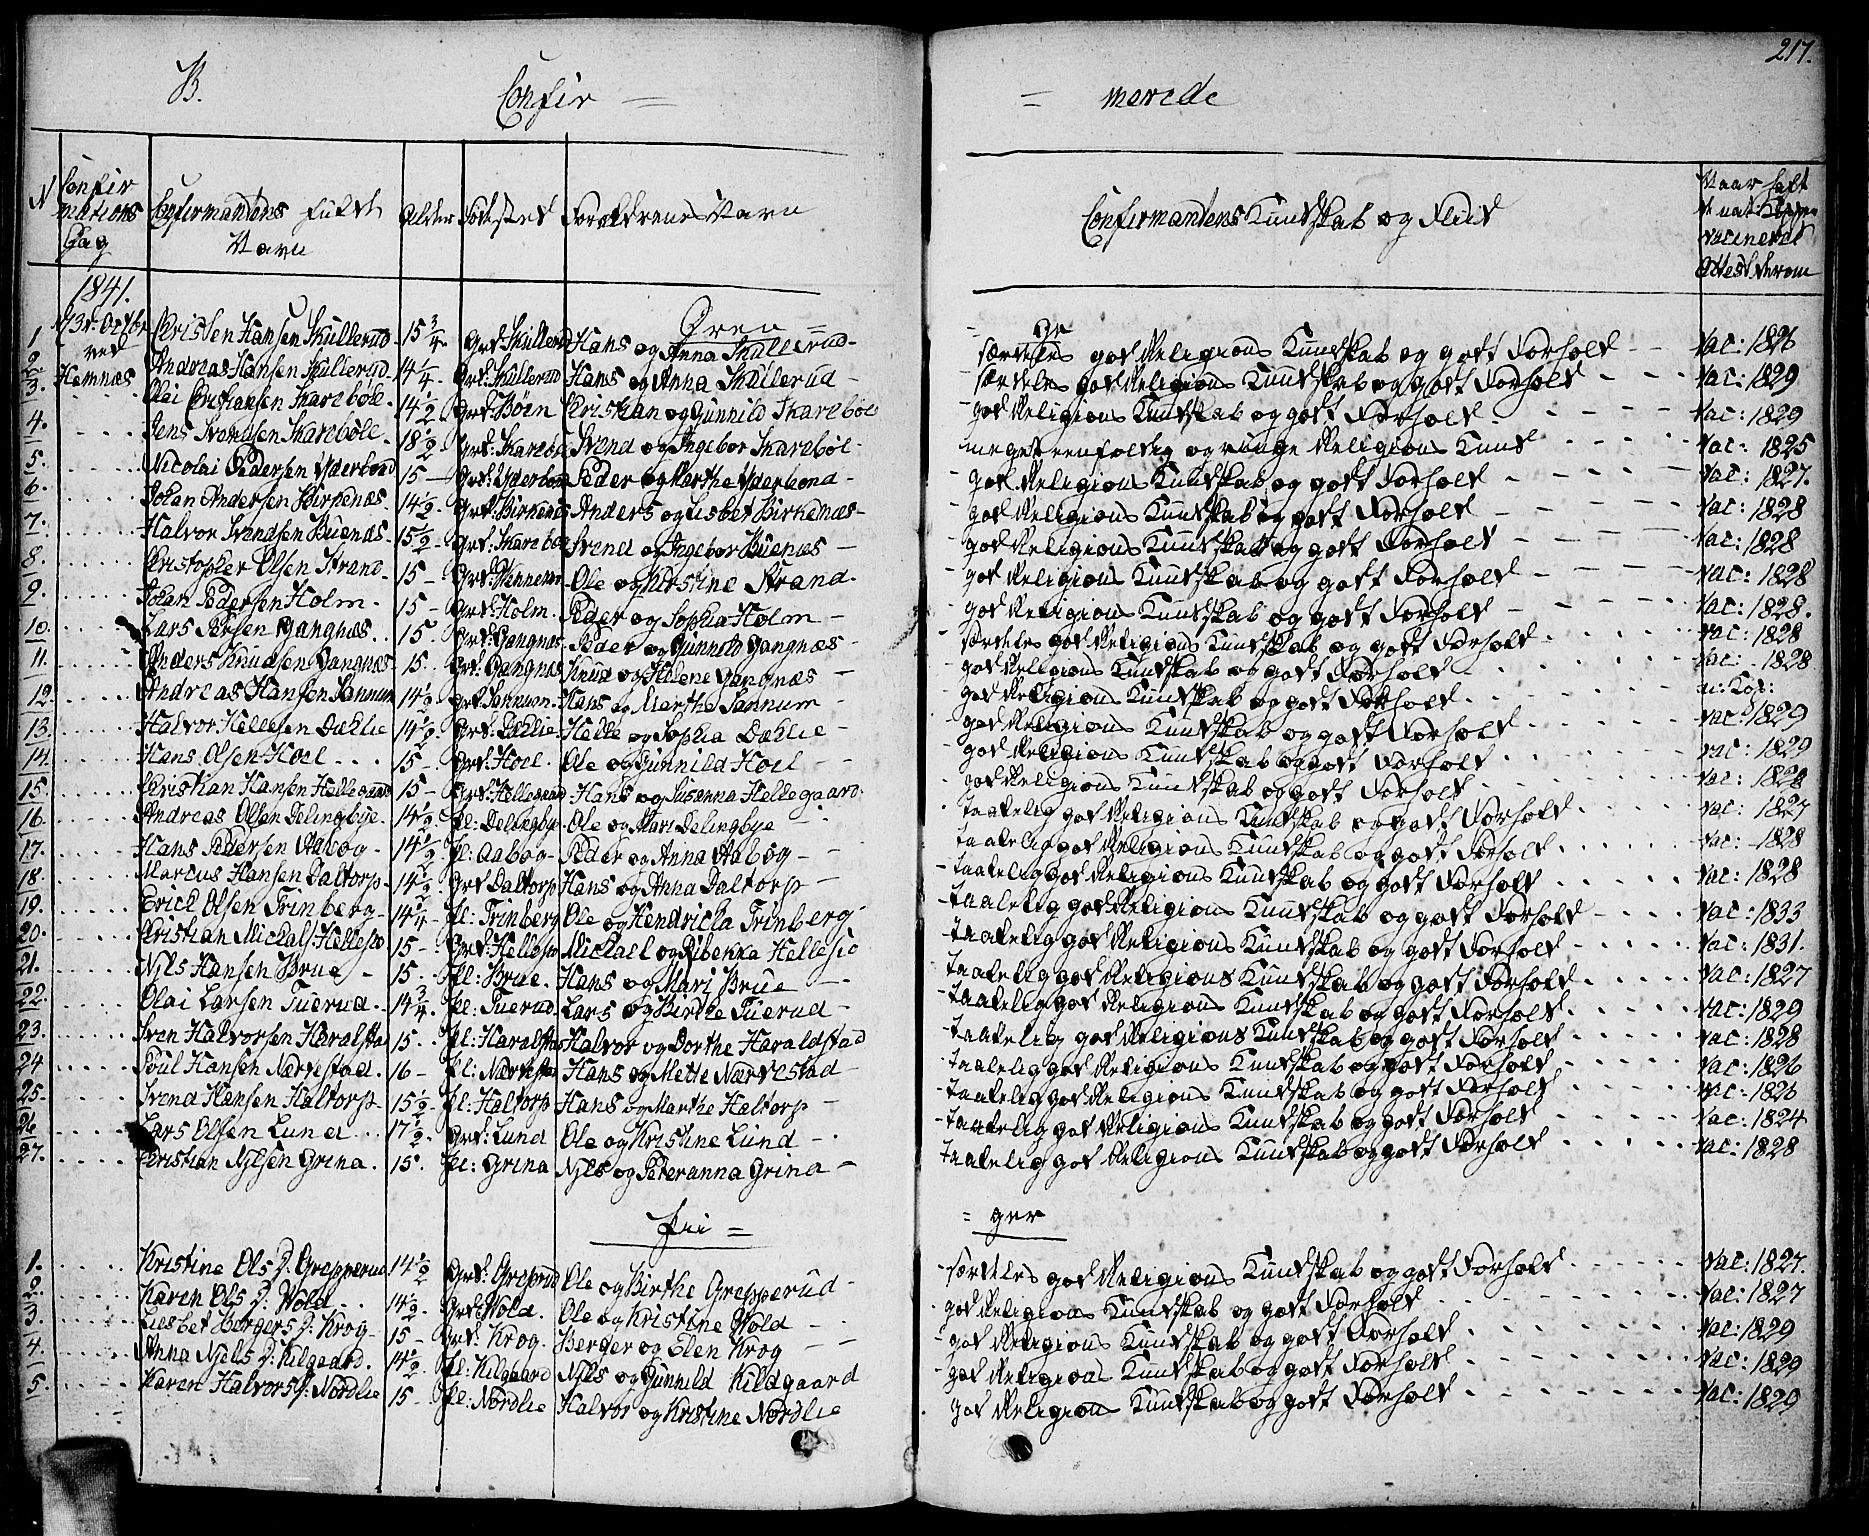 217.
B. Confir = = merede
N Confirmations Dag Confirmantens fulde Navn Alder Fødested Forældrenes Navn Confirmantens Kundskab og Flid Naar haft de nat: Kopper vaccineret Attest derom
1841.
Øren = = ge
1 Christen Hansen Skullerud 15 3/4 Grd: Skullerud Hans og Anna Skullerud - særdeles god Religions Kundskab og godt Forhold Vac: 1826
ved Hemnæs
2. Andreas Hansen Skullerud 14 1/4 Grd: Skullerud Hans og Anna Skullerud - særdeles god Religions Kundskab og godt Forhold Vac: 1829
3. Olai Christiansen Skarebøl 14 1/2 Grd: Böen Christian og Gunnild Skarebøl - god Religions Kundskab og godt Forhold Vac: 1829
4. Jens Svendsen Skarebøll 18 1/2 Grd: Skarebøl Svend og Ingebor Skarebøl - meget eenfoldig og ringe Religions Kund Vac: 1825
5. Nicolai Pedersen Yderbond 15 Grd: Yderbond Peder og Marthe Yderbond - god Religions Kundskab og godt Forhold Vac: 1827.
6. Johan Andersen Birkenæs 14 1/2 Grd: Birkenæs Anders og Lisbet Birkenæs - god Religions Kundskab og godt Forhold Vac: 1828
7. Halvor Svendsen Buenæs 15 1/2 Grd: Skarebøl Svend og Ingebor Buenæs - god Religions Kundskab og godt Forhold Vac: 1828
8. Christopher Olsen Strand 15 Ole og Kirstine Strand - god Religions Kundskab og godt Forhold Vac: 1828
9. Johan Pedersen Holm 15 Grd: Holm. Peder og Sophia Holm - god Religions Kundskab og godt Forhold Vac: 1828.
10. Lars Persen Gangnæs 15 Grd: Gangnæs Peder og Gunnild Gangnæs - særdeles god Religions Kundskab og godt Forhold Vac: 1828
11. Anders Knudsen Gangnæs 15 Grd: Gangnæs Knud og Helene Gangnæs - god Religions Kundskab og godt Forhold Vac: 1828
12. Andreas Hansen Sannum 14 1/2 Grd: Sannum Hans og Marthe Sannum - god Religions Kundskab og godt Forhold n: Kop:
13. Halvor Hellesen Dæhlie 14 1/2 Grd: Dæhlie Helle og Sophia Dæhlie - god Religions Kundskab og godt Forhold Vac: 1829
14. Hans Olsen Hoel 15 Grd: Hoel. Ole og Gunnild Hoel - god Religions Kundskab og godt Forhold Vac: 1829
15. Christian Hansen Hellegaard 15 Grd: Hellegaard Hans og Susanna Hellegaard - god Religions Kundskab og godt Forhold Vac: 1828
16. Andreas Olsen Delingbye 14 1/2 Pl: Delingbye Ole og Mari Delingbye - taalelig god Religions Kundskab og godt Forhold Vac: 1827
17. Hans Pedersen Aabog 14 1/2 Pl: Aabog Peder og Anna Aabog - taalelig god Religions Kundskab og godt Forhold Vac: 1828
18. Marcus Hansen Daltorp 14 1/2 Grd Daltorp Hans og Anna Daltorp - taalelig god Religions Kundskab og godt Forhold Vac: 1828
19. Erich Olsen Trinberg 14 1/4 Pl: Trinberg Ole og Hendricka Trinberg - taalelig god Religions Kundskab og godt Forhold Vac: 1833
20. Christian Mickals: Hellesjo 15 Grd: Hellesjo Mickael og Ribekka Hellesjo - taalelig god Religions Kundskab og godt Forhold Vac: 1831.
21. Njls Hansen Brue 15 Pl: Brue. Hans og Mari Brue - taalelig god Religions Kundskab og godt Forhold Vac: 1827
22. Olai Larsen Tuerud 14 3/4 Pl: Tuerud. Lars og Birthe Tuerud - taalelig god Religions Kundskab og godt Forhold Vac: 1829
23. Sven Halvorsen Haralstad 15 Pl: Haralstad Halvor og Dorthe Haraldstad - taalelig god Religions Kundskab og godt Forhold Vac: 1828
24 Poul Hansen Nærvestad 16 Pl: Nærvestad Hans og Mette Nærvestad - taalelig god Religions Kundskab og godt Forhold Vac: 1826
25. Svend Hansen Haltorp 15 1/2 Pl: Haltorp Hans og Marthe Haltorp - taalelig god Religions Kundskab og godt Forhold Vac: 1826
26 Lars Olsen Lund 17 1/2 Grd: Lund Ole og Kristine Lund - taalelig god Religions Kundskab og godt Forhold Vac: 1824
27. Christian Njlsen Grina 15 Pl: Grina Njls og Peteranna Grina - taalelig god Religions Kundskab og godt Forhold Vac: 1828
Pii = = ger
1. Kristine Ols D: Grepperud 14 1/2 Grd: Greperud Ole og Birthe Grepperud - særdeles god Religions Kundskab og godt Forhold Vac: 1827.
2. Karen Ols D: Wold 14 1/2 Grd: Wold. Ole og Kristine Wold - god Religions Kundskab og godt Forhold Vac: 1827
3. Liesbet Bergers D: Krog 15 Grd: Krog. Berger og Elen Krog - god Religions Kundskab og godt Forhold Vac: 1829
4. Anna Njels D: Kilgaard. 14 1/2 Pl: Kilgaard Njls og Gunnild Kildgaard - god Religions Kundskab og godt Forhold Vac: 1829
5. Karen Halvors D: Nordlie 15 Pl: Nordlie Halvor og Kristine Nordlie - god Religions Kundskab og godt Forhold Vac: 1829